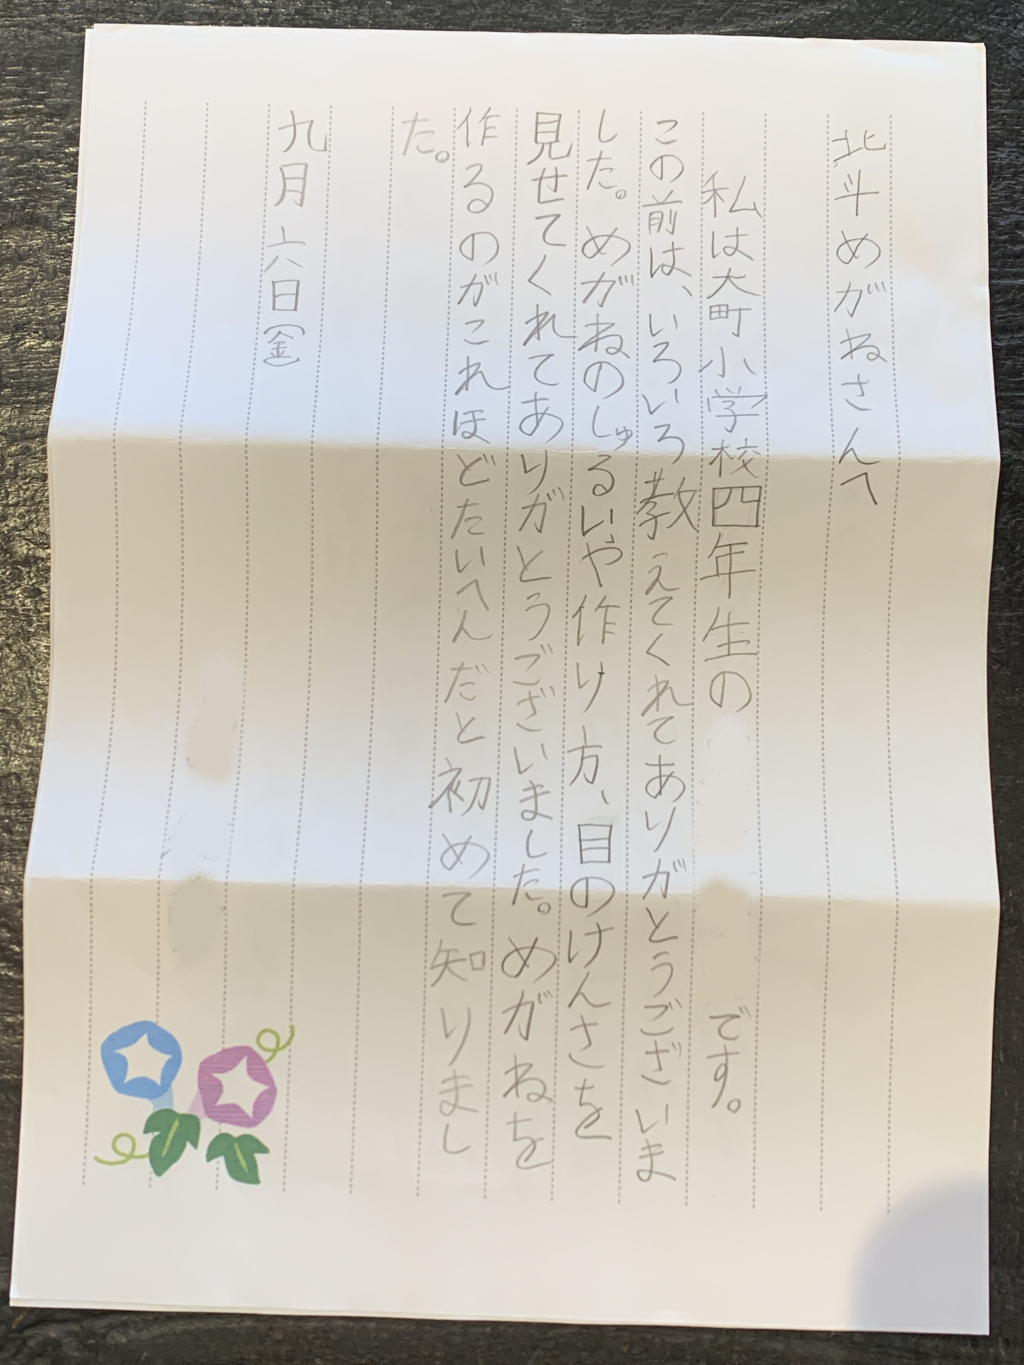 北斗めがねさんへ
私は大町小学校四年生の です。
この前は、いろいろ教えてくれてありがとうございま
した。めがねのしゅるいや作り方、目のけんさを
見せてくれてありがとうございました。めがねを
作るのがこれほどたいへんだと初めて知りまし
た。
九月六日(金)